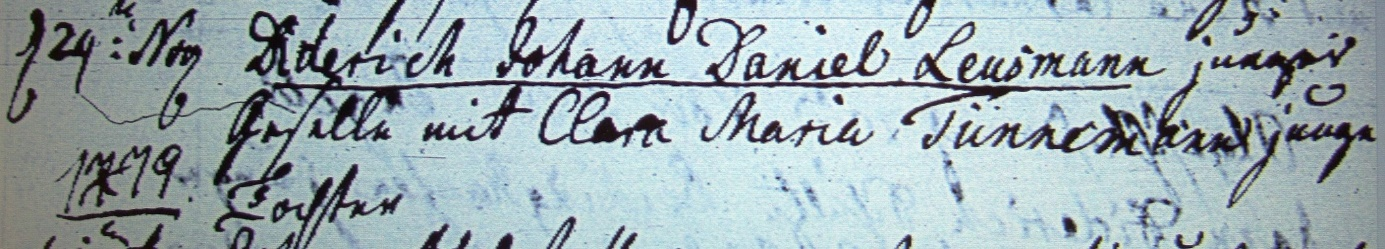 d 24ten Nov Diderich Johann Daniel Leusmann junger
Geselle mit Clara Maria Tünnemann junge
1779. Tochter